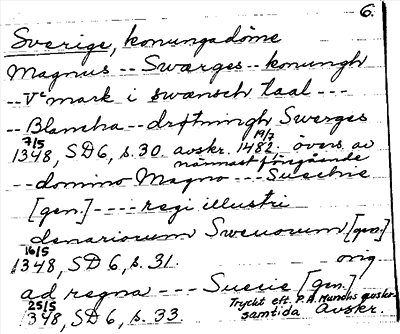 6.
Sverige, konungadöme
Magnus -- Swærges -- konungh
-- Vc mark i swænsch taal ---
-- Blancha -- drotningh Swerges
7/5 1348, SD 6, s. 30 avskr. 19/7 1482. övers. av
närmast föregående
-- domino Magno --- Suechie
[gen.] ---- regi illustri
denariorum Sweuorum [gen]
16/5 1348, SD 6, s. 31. orig
ad regna --- Suecie [gen.]
25/5 1348, SD 6, s. 33 Tryckt eft. P. A. Munchs avskr.
samtida Avskr.